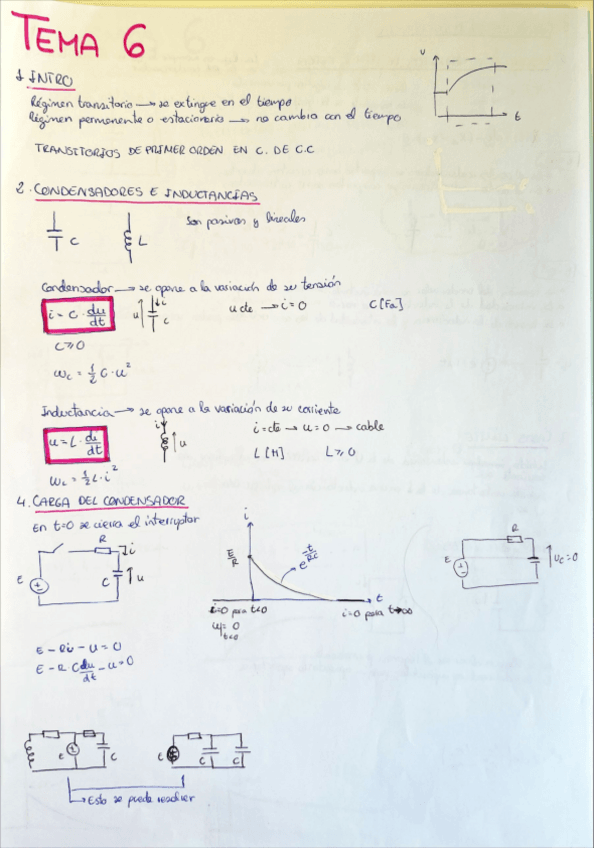 TEMA 6
1 INTRO
Régimen transitorio → se extingue en el tiempo
Régimen permanente o estacionario → no cambia con el tiempo
TRANSITORIOS DE PRIMER ORDEN EN C. DE C.C
U
t
2. CONDENSADORES E INDUCTANCIAS
C
L
Son pasivos y lineales
Condensador → se opone a la variación de su tensión
i = C · du/dt
u
i
C
u cte → i = 0
C [Fa]
C ≥ 0
Wc = 1/2 C · u²
Inductancia → se opone a la variación de su corriente
u = L · di/dt
i
u
i = cte → u = 0 → cable
L [H]
L ≥ 0
WL = 1/2 L · i²
4. CARGA DEL CONDENSADOR
En t=0 se cierra el interruptor
E
R
i
C
u
i
E/R
e^-t/RC
t
i=0 para t<0
i=0 para t→∞
u = 0
t<0
E
R
Uc=0
E - Ri - u = 0
E - R C du/dt - u = 0
E
C
E
C
C
Esto se puede resolver